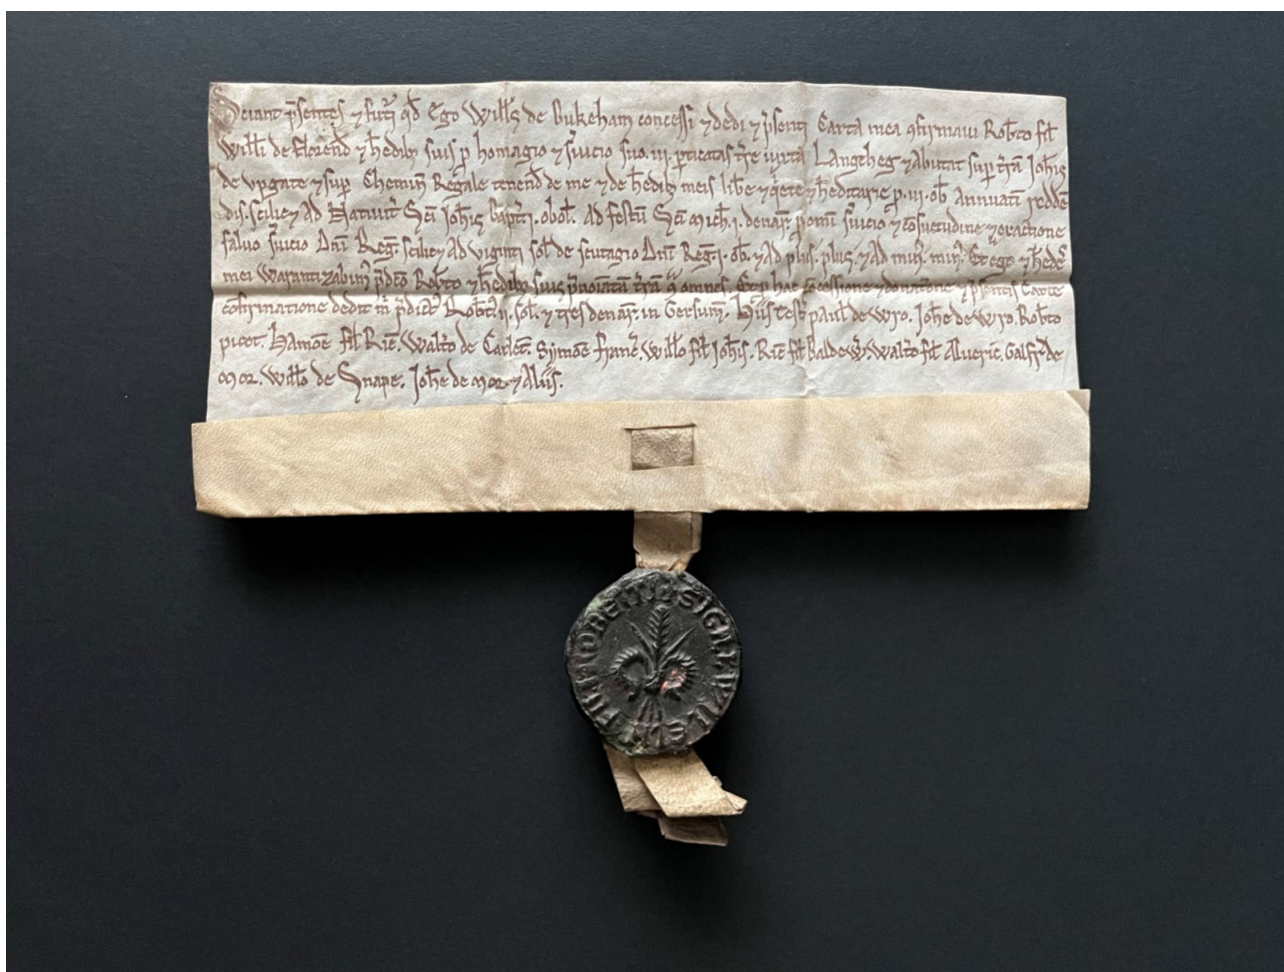 Sciant p̄sentes ⁊ futᷣi qd̄ Ego Will̄s de Bukeham concessi ⁊ dedi ⁊ p̄senti Carta mea 9firmaui Rob̄to fil̄
Will̄i de Florend̄ ⁊ h̄edib; suis p̱ homagio ⁊ s̄uicio suo .iii. p̱ticatas t̄re iuxta Langtheg ⁊ Abutat sup̱ t̄rā Joh̄is
de vpgate ⁊ sup̱ Cheminū Regale tenend̄ de me ⁊ de h̄edib; meis lib̄e ⁊ q̓ete ⁊ h̄editarie p̱ .vi. ob̄ Annuatī reddē
dis. scilic⁊ Ad Natiuit̄ Sc̄i Joh̄is Bapt̄ .i. obol̄. Ad festū Sc̄i Mich̄ .i. denar̄ p̱ omni s̄uicio ⁊ c̄osuetudine ⁊
saluo s̄uicio Dn̄i Reḡ. scilic⁊ Ad viginti sol̄ de scutagio Dn̄i Reḡ .i. ob̄. ⁊ Ad plus. plus. ⁊ Ad min᷒. min᷒. Et ego ⁊ h̄edes
mei Warantizabim᷒ p̄dc̄o Rob̄to ⁊ h̄edib; suis p̄noīatā t̄rā 9͛ omnes. Et p̱ hac 9cessione ⁊ donatione ⁊ p̄sentis Carte
cōfirmatione dedit m̄ p̄dict᷒ Rob̄t᷒ .ii. sol̄. ⁊ tres denar̄. in Gersum̄. Hiis test̄ paul̄ de Wro. Joh̄e de Wro. Rob̄to
picot. Hamōe fil̄ Ric̄. Walt̄o de Carlet̄. Symōe franc̄. Will̄o fil̄ Joh̄is. Ric̄ fil̄ Baldew̄. Walt̄o fil̄ Aluric. Galfr̄ de
Mor. Will̄o de Snape. Joh̄e de Mor ⁊ Aliis.
SIGILL' WILLE